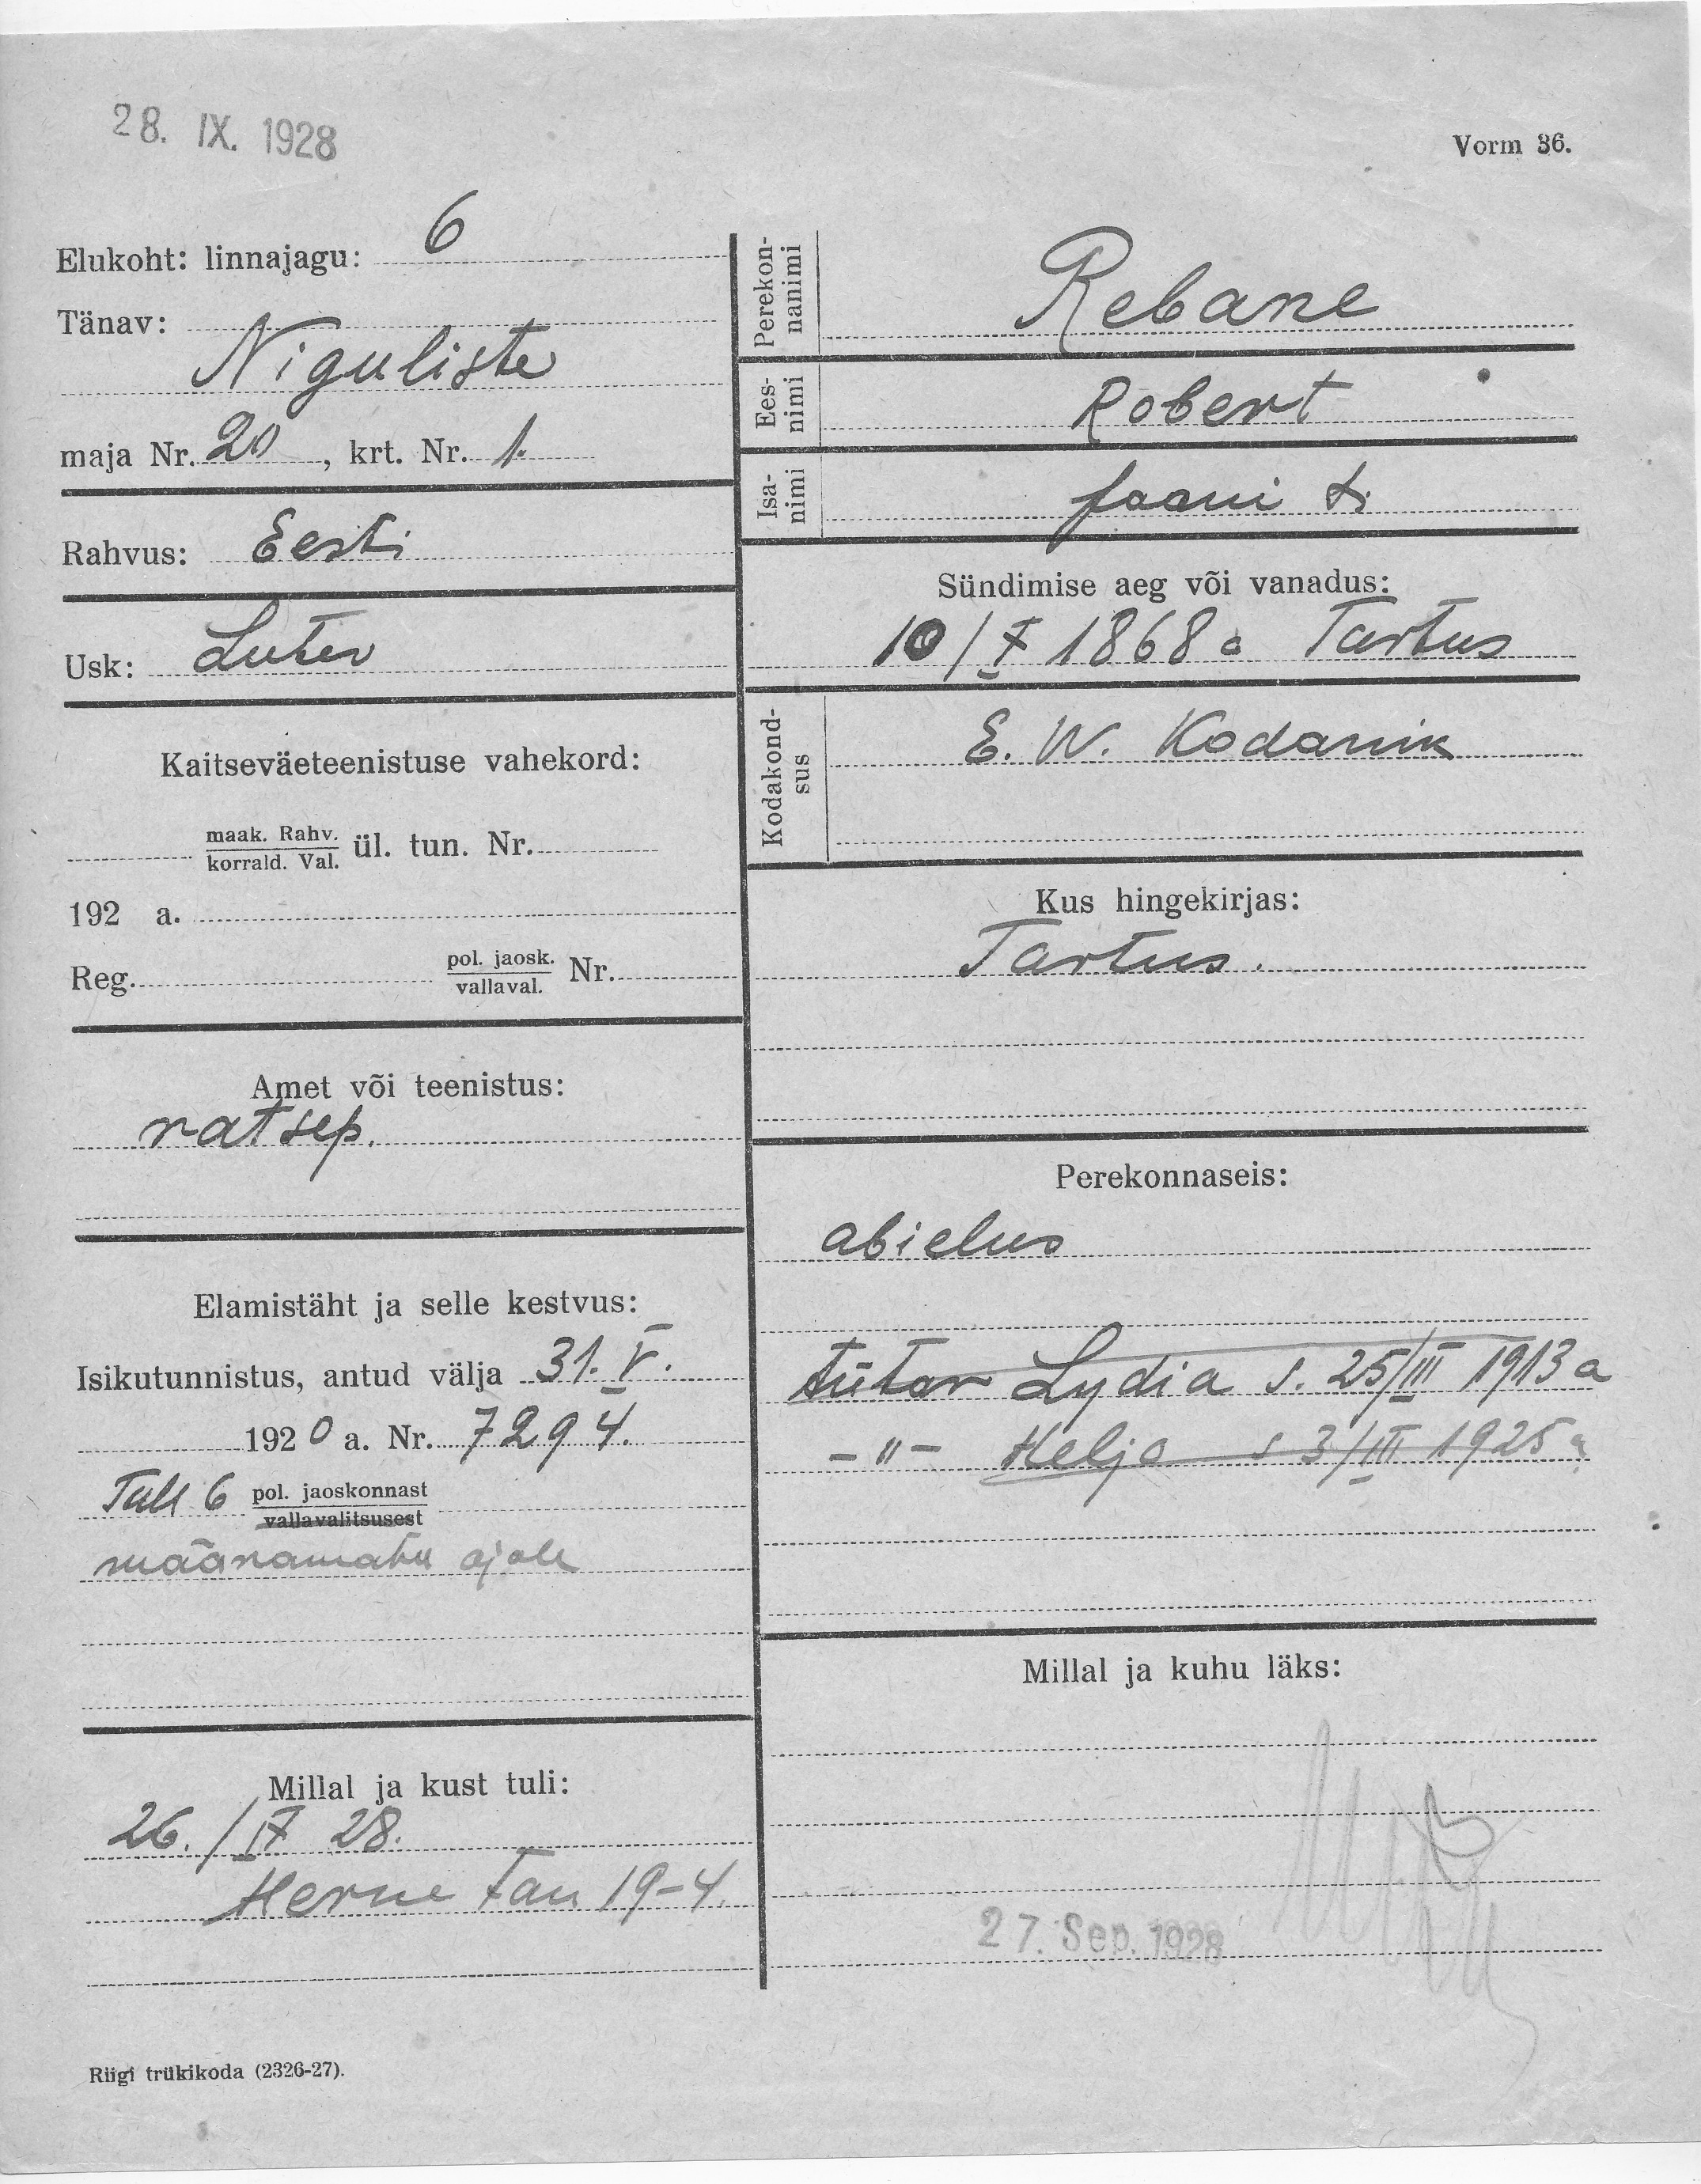 28. IX. 1928
Vorm 36.
Elukoht: linnajagu: 6
Tänav:
Niguliste
maja Nr. 20, krt. Nr. 1.
Rahvus: Eesti
Usk: Luter
Kaitseväeteenistuse vahekord:
maak. Rahv.
korrald. Val. ül. tun. Nr.
192 a.
Reg. pol. jaosk.
vallaval. Nr.
Amet või teenistus:
ratsep.
Elamistäht ja selle kestvus:
Isikutunnistus, antud välja 31. V.
1920 a. Nr. 7294.
Tall 6 pol. jaoskonnast
vallavalitsusest
määramata ajale
Millal ja kust tuli:
26./IX 28.
Herne tän 19-4.
Perekon-
nanimi
Rebane
Ees-
nimi
Robert
Isa-
nimi
Jaani t.
Sündimise aeg või vanadus:
10/X 1868 a Tartus
Kodakond-
sus
E. W. Kodanik
Kus hingekirjas:
Tartus.
Perekonnaseis:
abielus
tütar Lydia s. 25/III 1913 a
-"- Helja s 3/III 1925 a
Millal ja kuhu läks:
27. Sep. 1928
Riigi trükikoda (2326-27).